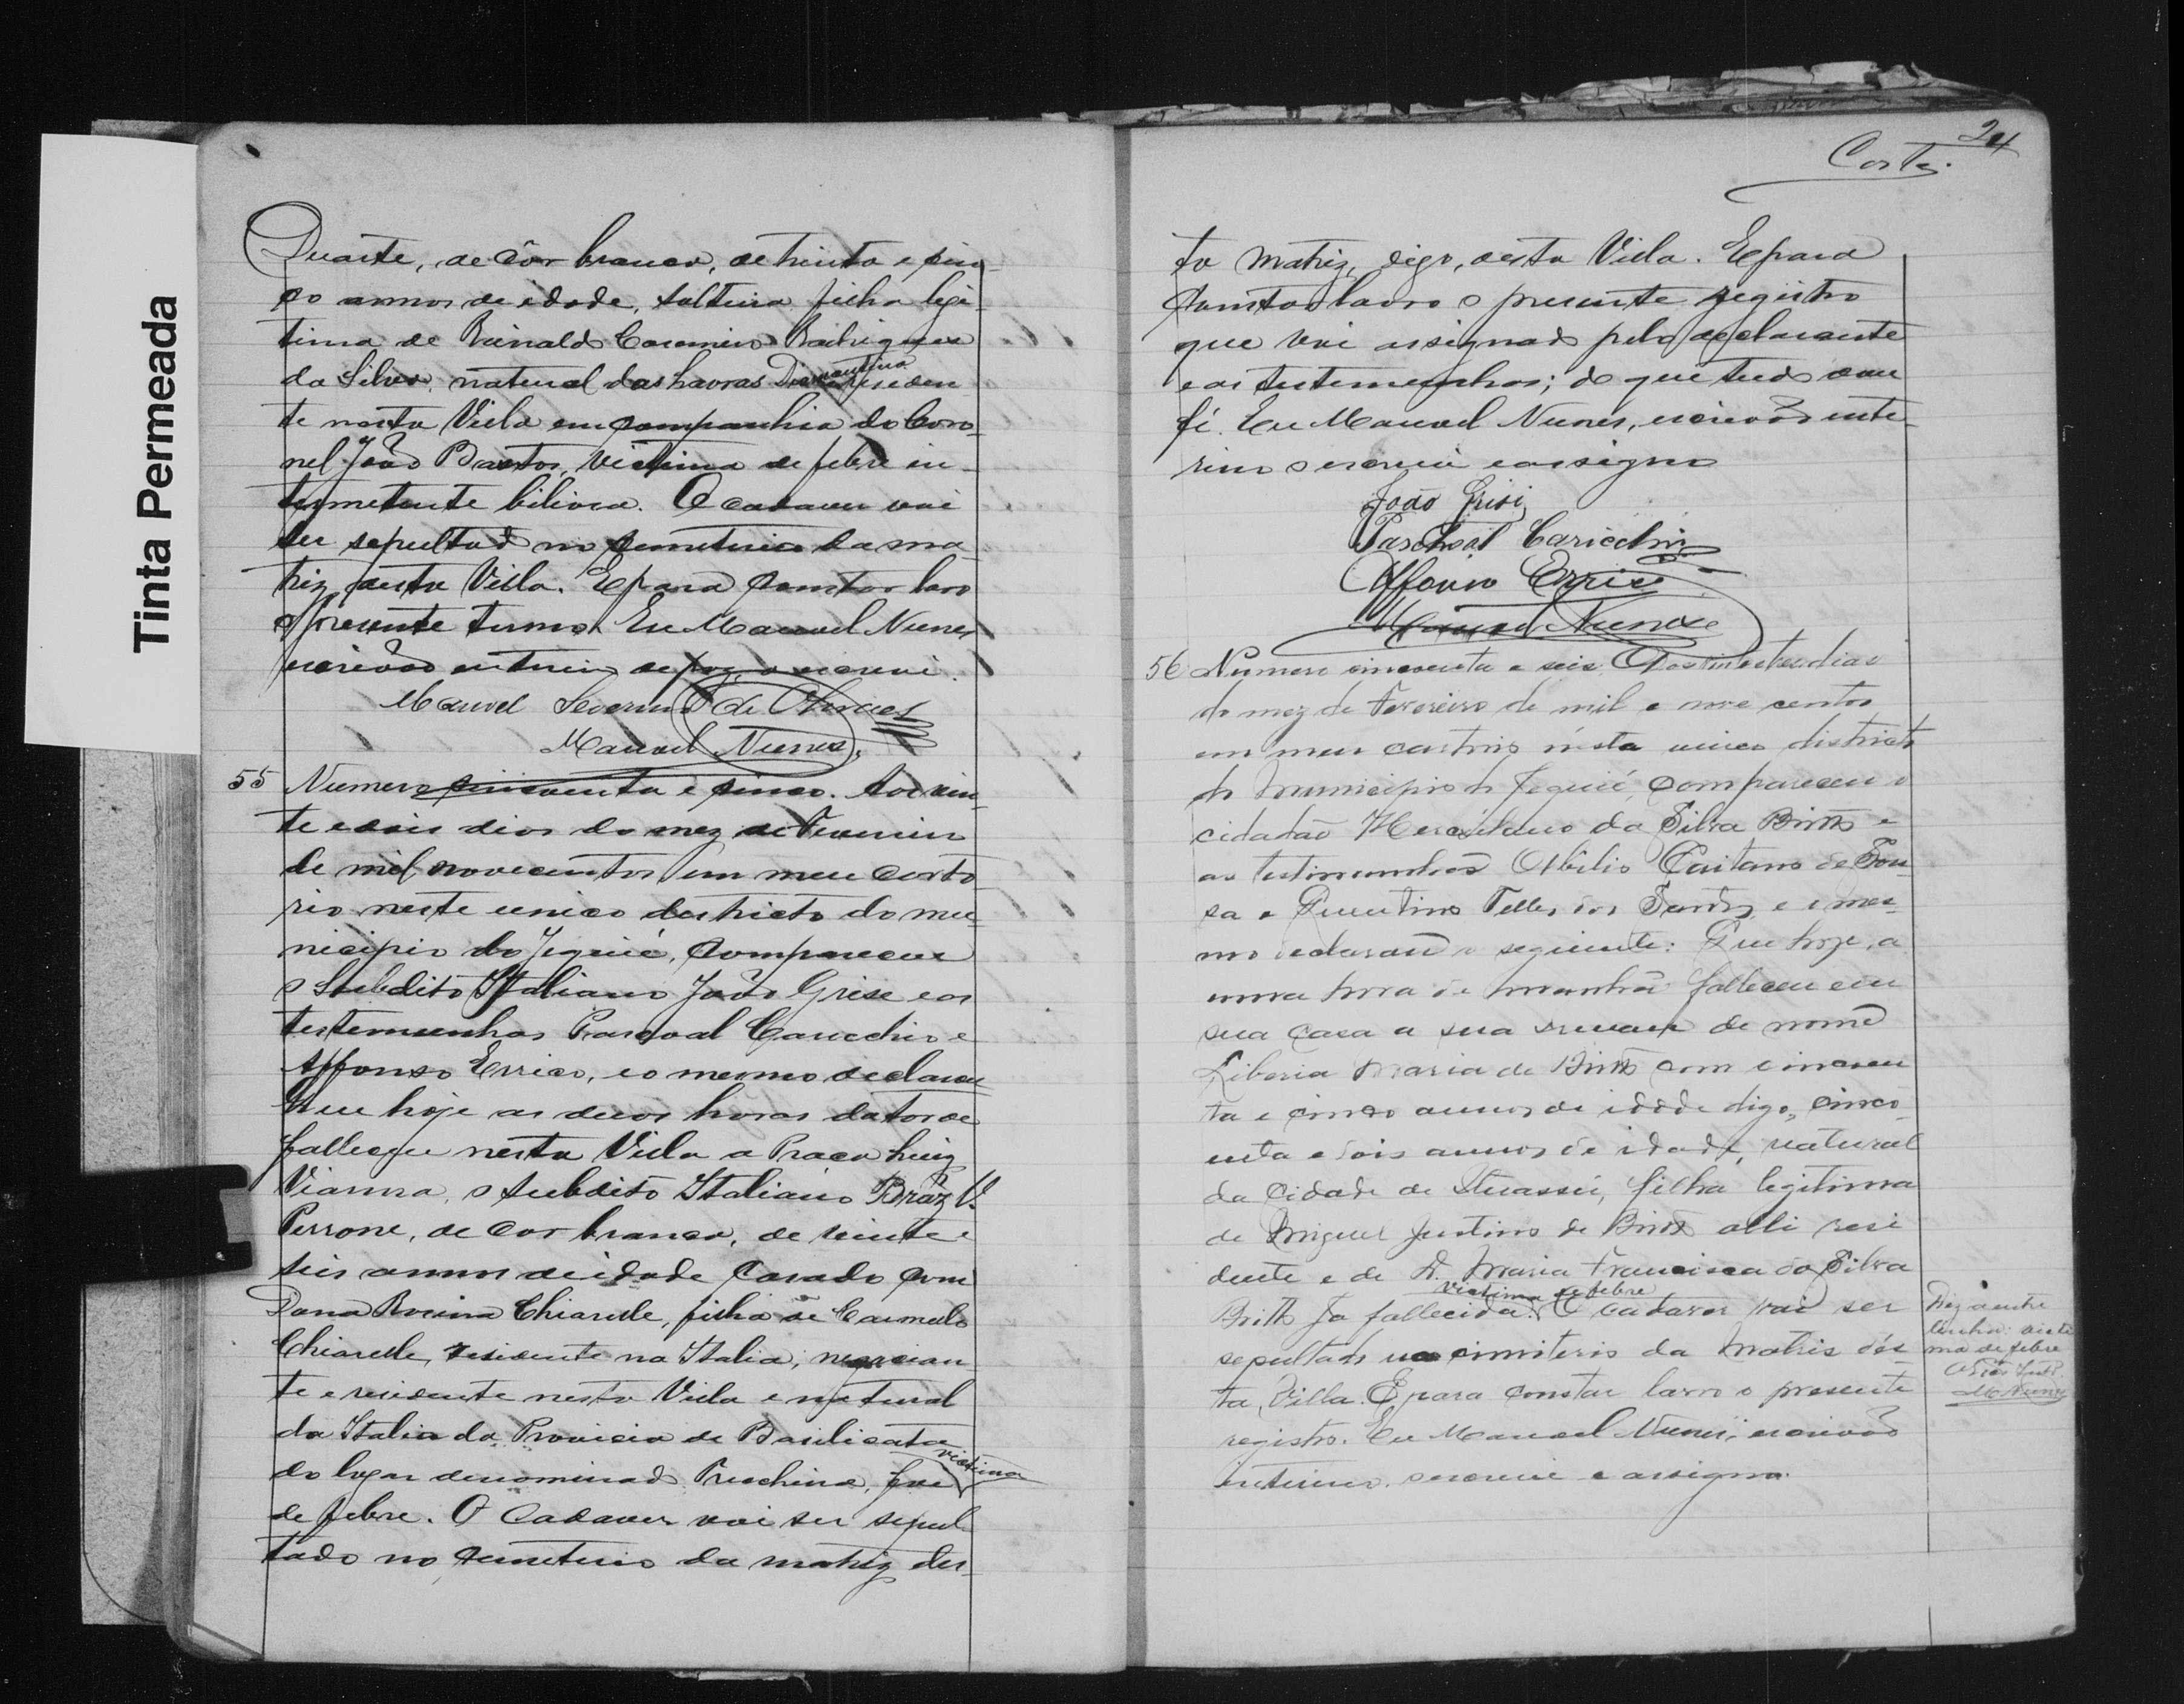 Tinta Permeada
Duarte, de côr branca, de trinta e sin-
co annos de idade, solteira filha legi-
tima de Reinaldo Rodrigues
da Silva, natural das Lavras Diamantina residen-
te nesta Villa em companhia do Coro-
nel João Bastos, victima de febre in-
termetente biliosa. O cadaver vai
ser sepultado no semeterio da ma-
triz desta Villa. E para constar lavro
o presente termo. Eu Manuel Nunes
escrivão enterino de paz, o escrevi.
Manuel Severino de
Manuel Nunes.
55 Numero sincoenta e sinco. Aos vin-
te e dois dias do mez de Fevereiro
de mil novecentos em meu carto-
rio neste unico destricto do mu-
nicipio do Jequié, compareceu
o Subdito Italiano João Grise e as
testemunhas Pascoal Caricchio e
Affonso Errico, e o mesmo declarou
que hoje as duas horas da tarde
falleceu nesta Villa a Praca Luiz
Vianna, o subdito Italiano Braz V.
Perrone, de cor branca, de vinte e
seis annos de idade casado com
Dona Rosina Chiarelle, filha de Carmelo
Chiarelle, residente na Italia, negocian-
te e residente nesta Villa e natural
da Italia da Provicia de Basilicata
do lugar denominado Trechina, foi victima
de febre. O Cadaver vai ser sepul-
tado no semeterio da matriz des-
24
Costa.
ta Matriz, digo, desta Villa. E para
constar lavro o presente registro
que vai assignado pelo declarante
e as testemunhas; do que tudo dou
fé. Eu Manuel Nunes, escrivão inte-
rino o escrevi e assigno
João Grisi
Paschoal Caricchio
Affonso Errico
Manuel Nunes
56 Numero sincoenta e seis. Aos vinte e tres dias
do mez de Fevereiro de mil e nove centos
em meu cartorio nésta unico districto
do Municipio de Jequié, compareceu o
cidadão Herculano da Silva Britto e
as testimunhas Abilio Caitano de Sou-
sa e Quentino Telles dos Santos, e o mes-
mo declarou o seguinte: Que hoje, a
uma hora da manhã falleceu em
sua casa a sua de nome
Liberia Maria de Britto com cincoen-
ta e cinco annos de idade digo, cinco-
enta e dois annos de idade, natural
da Cidade de Ituassú, filha legitima
de Miguel Justino de Britto alli resi-
dente e de D. Maria Francisca da Silva
Britto ja fallecida. victima de febre O cadaver vai ser
sepultado no cimiterio da Matris dés-
ta Villa. E para constar lavro o presente
registro. Eu Manuel Nunes, escrivão
interino. o escrevi e assigno.
Diz a entre
linha: victi-
ma de febre
M. Nunes